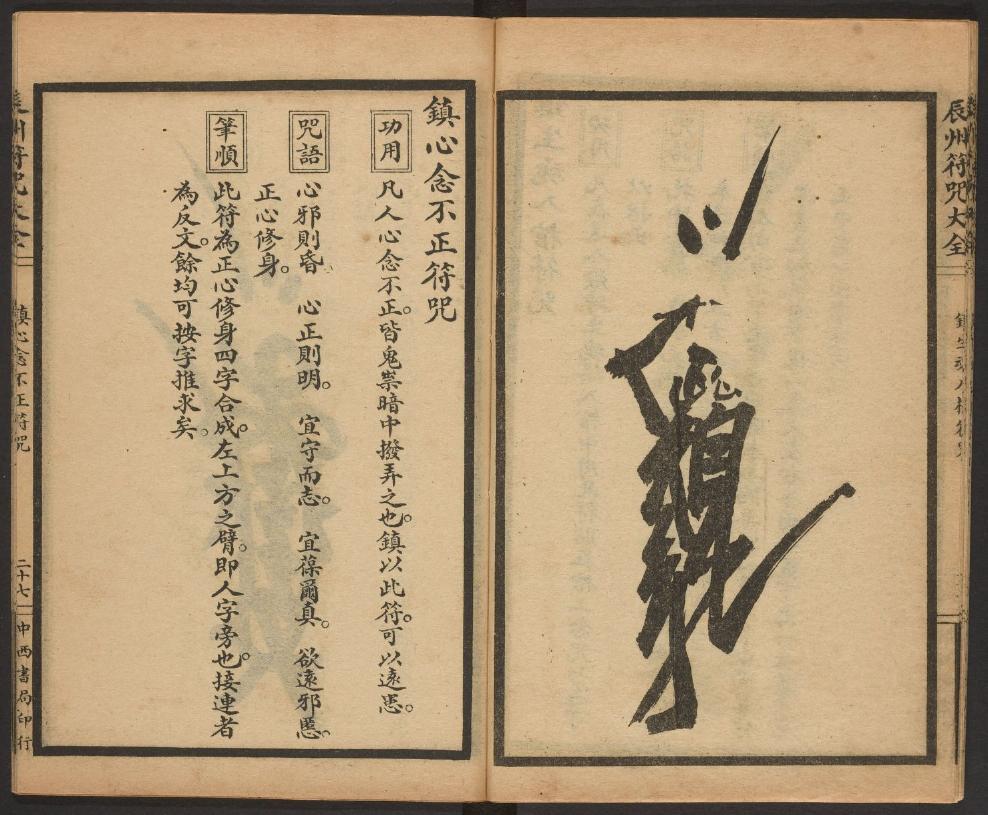 辰州符咒大全
鎮心念不正符咒
功用
凡人心念不正。皆鬼祟暗中撥弄之也。鎮以此符。可以遠惡。
咒語
心邪則昏。 心正則明。 宜守而志。 宜葆爾真。 欲遠邪慝。
正心修身。
筆順
此符為正心修身四字合成。左上方之臂。即人字旁也。接連者
為反文。餘均可按字推求矣。
辰州符咒大全
鎮心念不正符咒
二十七
中西書局印行